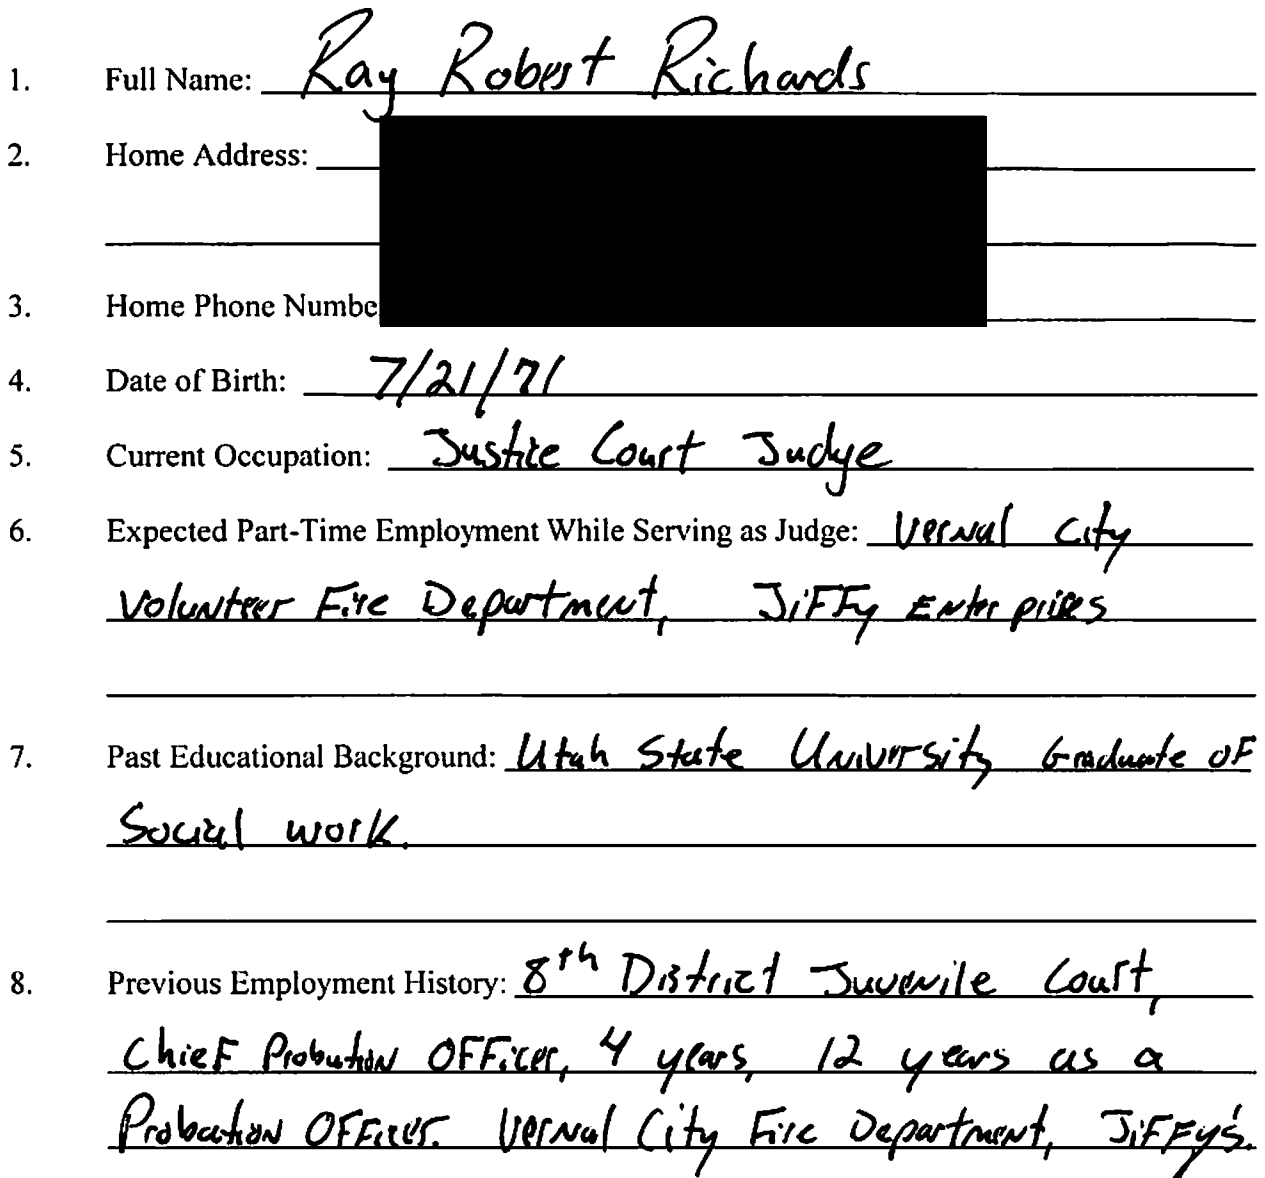 1. Full Name: Ray Robert Richards
2. Home Address:
3. Home Phone Numbe
4. Date of Birth: 7/21/71
5. Current Occupation: Justice Court Judge
6. Expected Part-Time Employment While Serving as Judge: Vernal City
Volunteer Fire Department, JiFFy Enterprises
7. Past Educational Background: Utah State University Graduate OF
Social work.
8. Previous Employment History: 8th District Juvenile Court,
ChieF Probation OFFicer, 4 years, 12 years as a
Probation OFFicer. Vernal City Fire Department, JiFFy's.